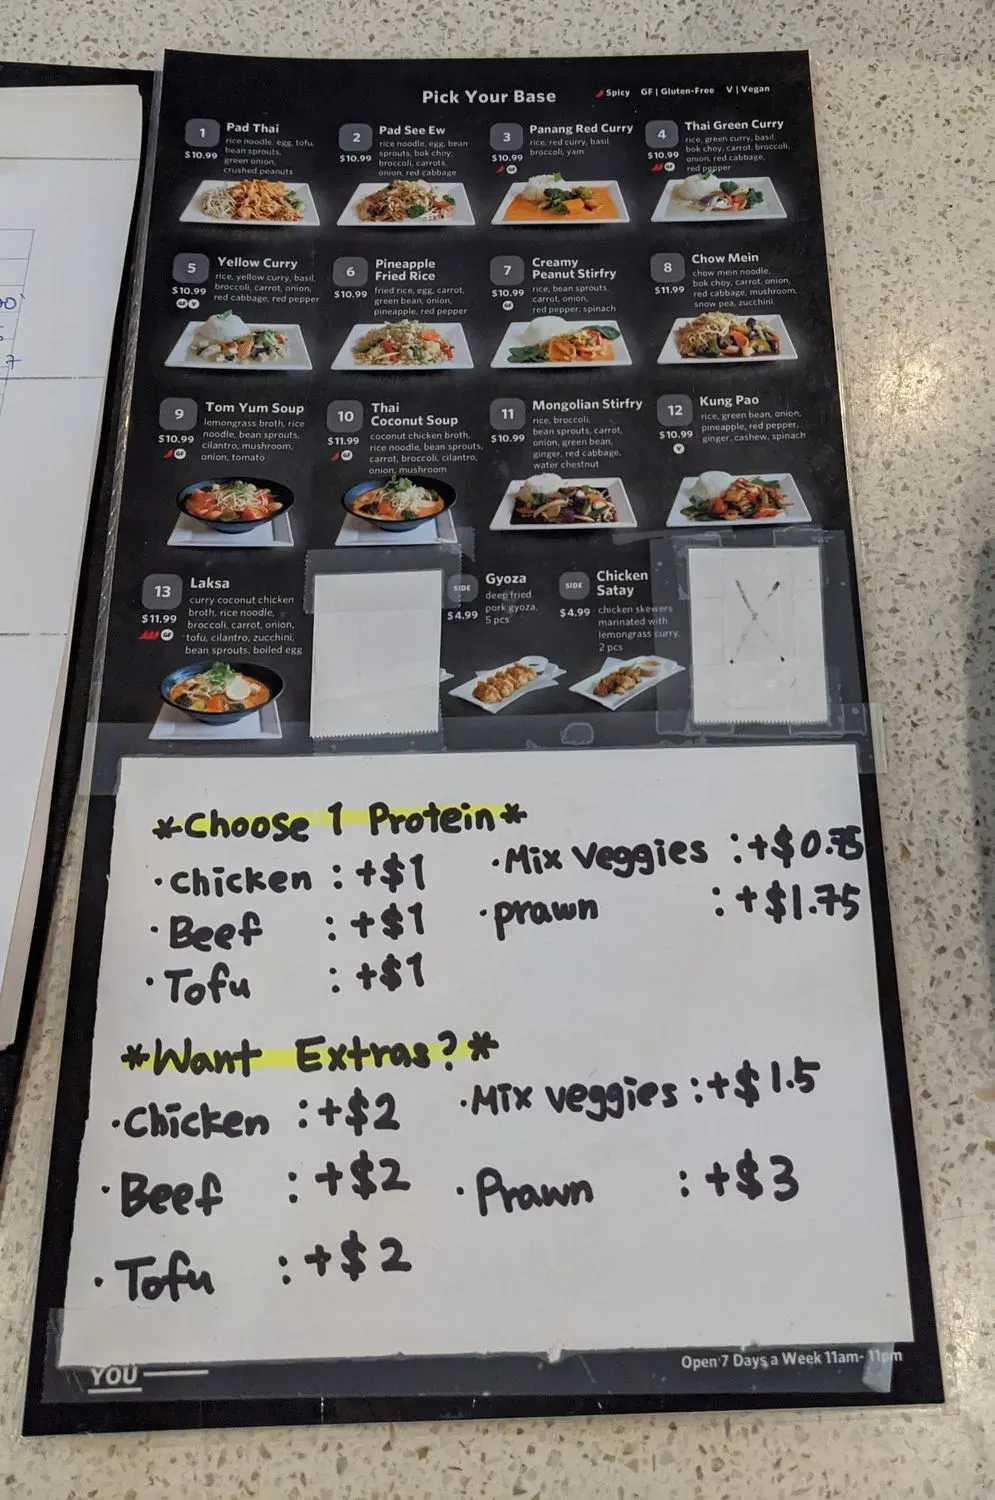 Pick Your Base
Spicy GF | Gluten-Free V | Vegan
1 Pad Thai
$10.99
rice noodle, egg, tofu,
bean sprouts,
green onion,
crushed peanuts
2 Pad See Ew
$10.99
rice noodle, egg, bean
sprouts, bok choy,
broccoli, carrots,
onion, red cabbage
3 Panang Red Curry
$10.99
GF
rice, red curry, basil
broccoli, yam
4 Thai Green Curry
$10.99
GF
rice, green curry, basil,
bok choy, carrot, broccoli,
onion, red cabbage,
red pepper
5 Yellow Curry
$10.99
GF V
rice, yellow curry, basil,
broccoli, carrot, onion,
red cabbage, red pepper
6 Pineapple
Fried Rice
$10.99
fried rice, egg, carrot,
green bean, onion,
pineapple, red pepper
7 Creamy
Peanut Stirfry
$10.99
GF
rice, bean sprouts,
carrot, onion,
red pepper, spinach
8 Chow Mein
$11.99
chow mein noodle,
bok choy, carrot, onion,
red cabbage, mushroom,
snow pea, zucchini
9 Tom Yum Soup
$10.99
GF
lemongrass broth, rice
noodle, bean sprouts,
cilantro, mushroom,
onion, tomato
10 Thai
Coconut Soup
$11.99
GF
coconut chicken broth,
rice noodle, bean sprouts,
carrot, broccoli, cilantro,
onion, mushroom
11 Mongolian Stirfry
$10.99
rice, broccoli,
bean sprouts, carrot,
onion, green bean,
ginger, red cabbage,
water chestnut
12 Kung Pao
$10.99
V
rice, green bean, onion,
pineapple, red pepper,
ginger, cashew, spinach
13 Laksa
$11.99
GF
curry coconut chicken
broth, rice noodle,
broccoli, carrot, onion,
tofu, cilantro, zucchini,
bean sprouts, boiled egg
SIDE Gyoza
$4.99
deep fried
pork gyoza,
5 pcs
SIDE Chicken
Satay
$4.99
chicken skewers
marinated with
lemongrass curry.
2 pcs
*Choose 1 Protein*
·Chicken : +$1
·Beef : +$1
·Tofu : +$1
·Mix veggies : +$0.75
·prawn : +$1.75
*Want Extras?*
·Chicken : +$2
·Beef : +$2
·Tofu : +$2
·Mix veggies : +$1.5
·Prawn : +$3
YOU
Open 7 Days a Week 11am- 11pm